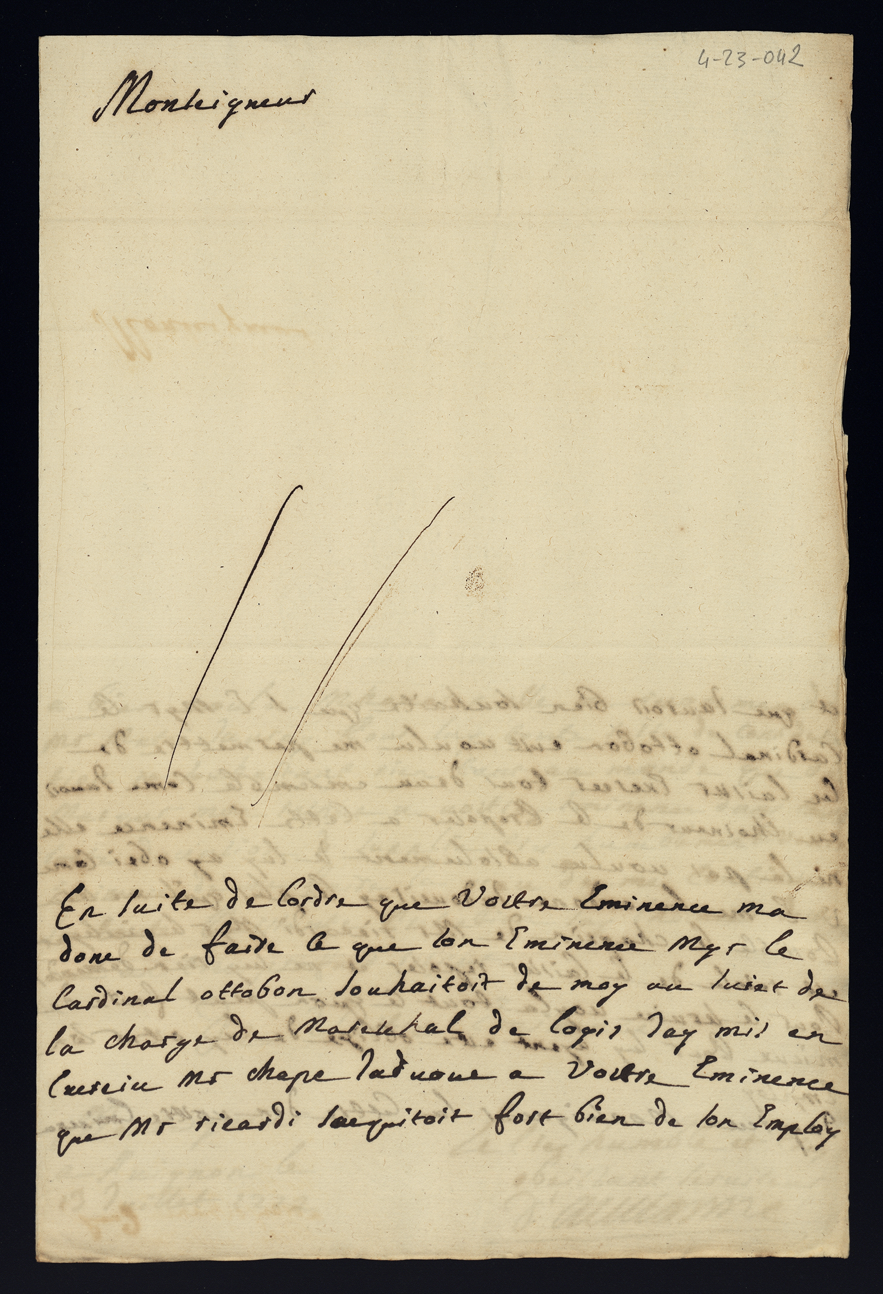 4-23-042
Monseigneur
En suite de lordre que Vostre Eminence ma
done de faire ce que son Eminence Mgr le
Cardinal ottobon souhaitoit de moy au suiet de
la charge de Mareschal de logis Jay mis en
Mr chape Jadvoue a Vostre Eminence
que Mr ricardi saquitoit fort bien de son Employ